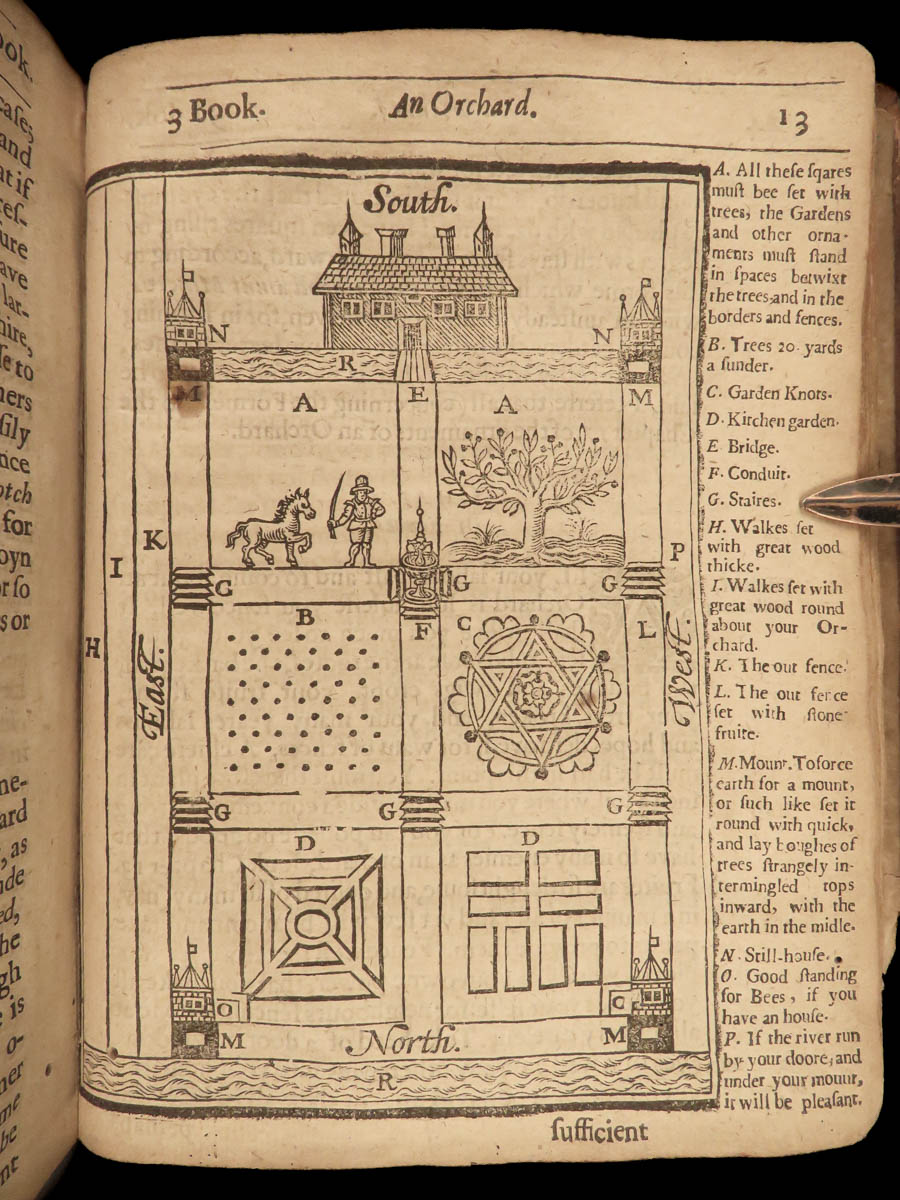 ook.
case;
and
at if
ref-
ure
ave
lar-
hire,
se to
ners
sily
nce
otch
for
oyn
or so
s or
ne-
ard
, as
nde
ed,
he
gh
is
o-
ner
me
be
nt
3 Book. An Orchard. 13
South.
N N
R
M A E A M
K P
I
G G G
B F C L
H
East. West.
G G G
D D
O C
M M
North.
R
A. All theſe ſqares
muſt bee ſet with
trees, the Gardens
and other orna-
ments muſt ſtand
in ſpaces betwixt
the trees, and in the
borders and fences.
B. Trees 20. yards
a ſunder.
C. Garden Knots.
D. Kitchen garden.
E Bridge.
F. Conduit.
G. Staires.
H. Walkes ſet
with great wood
thicke.
I. Walkes ſet with
great wood round
about your Or-
chard.
K. The out fence.
L. The out fence
ſet with ſtone
fruite.
M. Mount. To force
earth for a mount,
or ſuch like ſet it
round with quick,
and lay boughes of
trees ſtrangely in-
termingled tops
inward, with the
earth in the midle.
N. Still-houſe.
O. Good ſtanding
for Bees, if you
have an houſe.
P. If the river run
by your doore, and
under your mount,
it will be pleaſant.
ſufficient